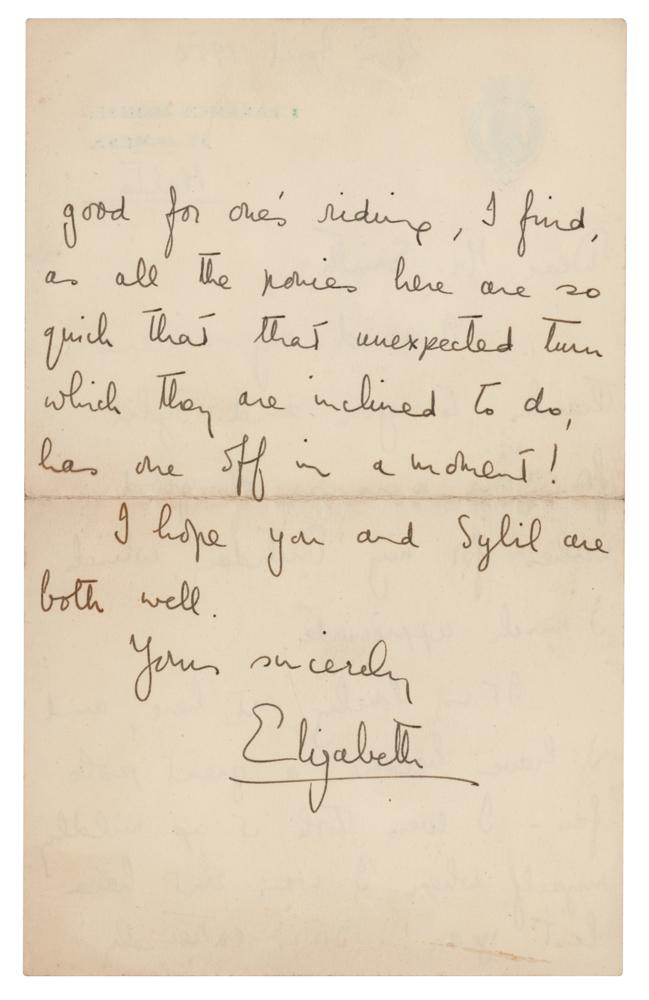 good for one's riding, I find,
as all the ponies here are so
quick that that unexpected turn
which they are inclined to do,
has one off in a moment!
I hope you and Sybil are
both well.
Yours sincerely
Elizabeth